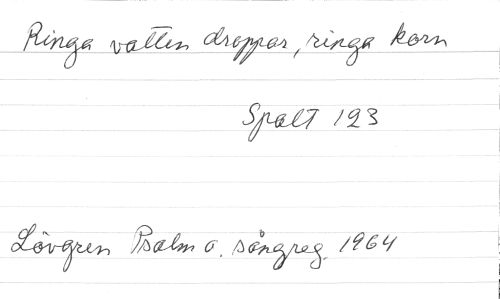 Ringa vatten droppar, ringa korn
Spalt 123
Lövgren Psalm o. sångreg. 1964